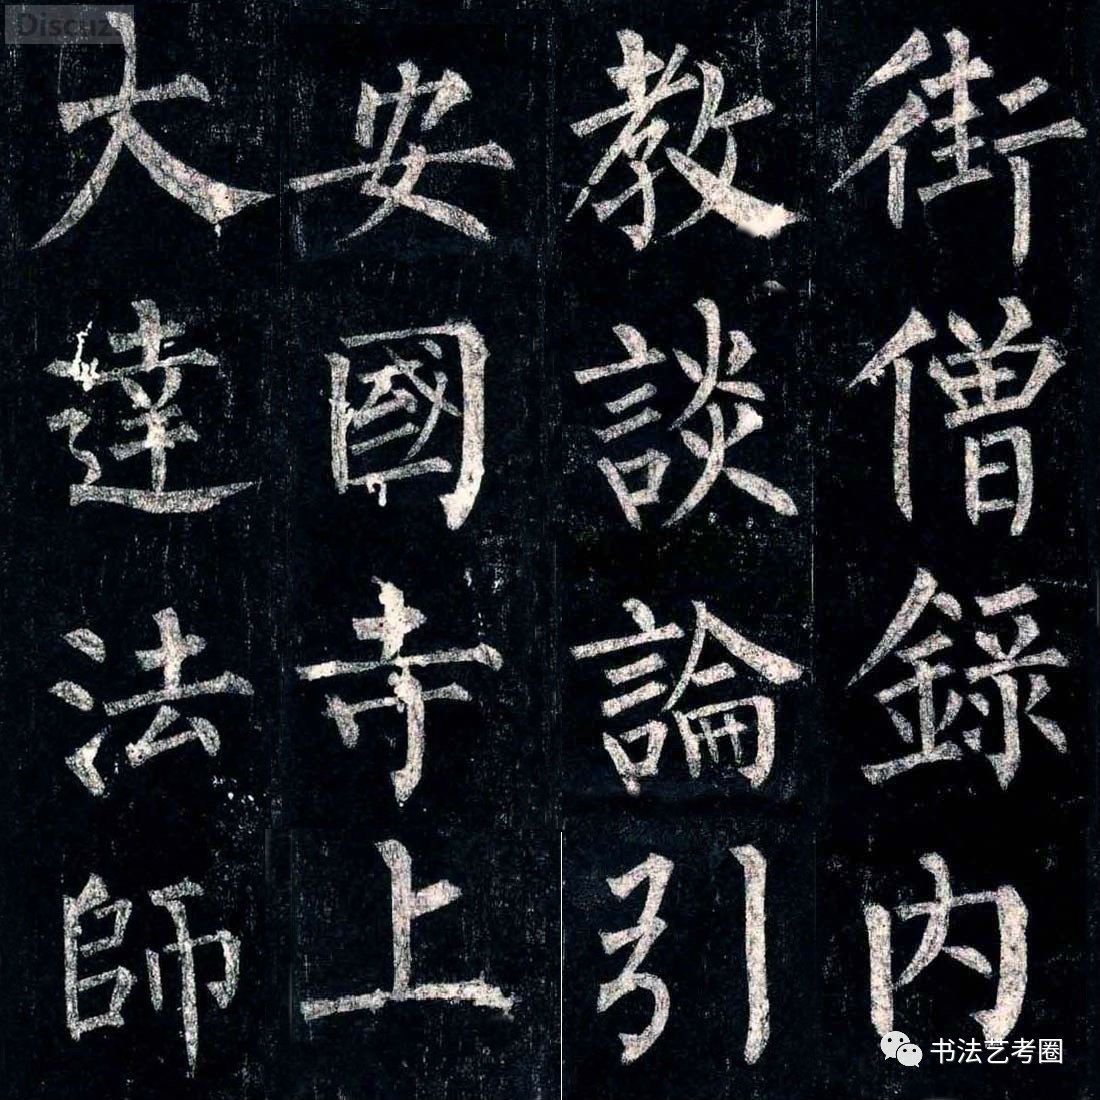 街僧錄內
教談論引
安國寺上
大達法師
Discuz
书法艺考圈